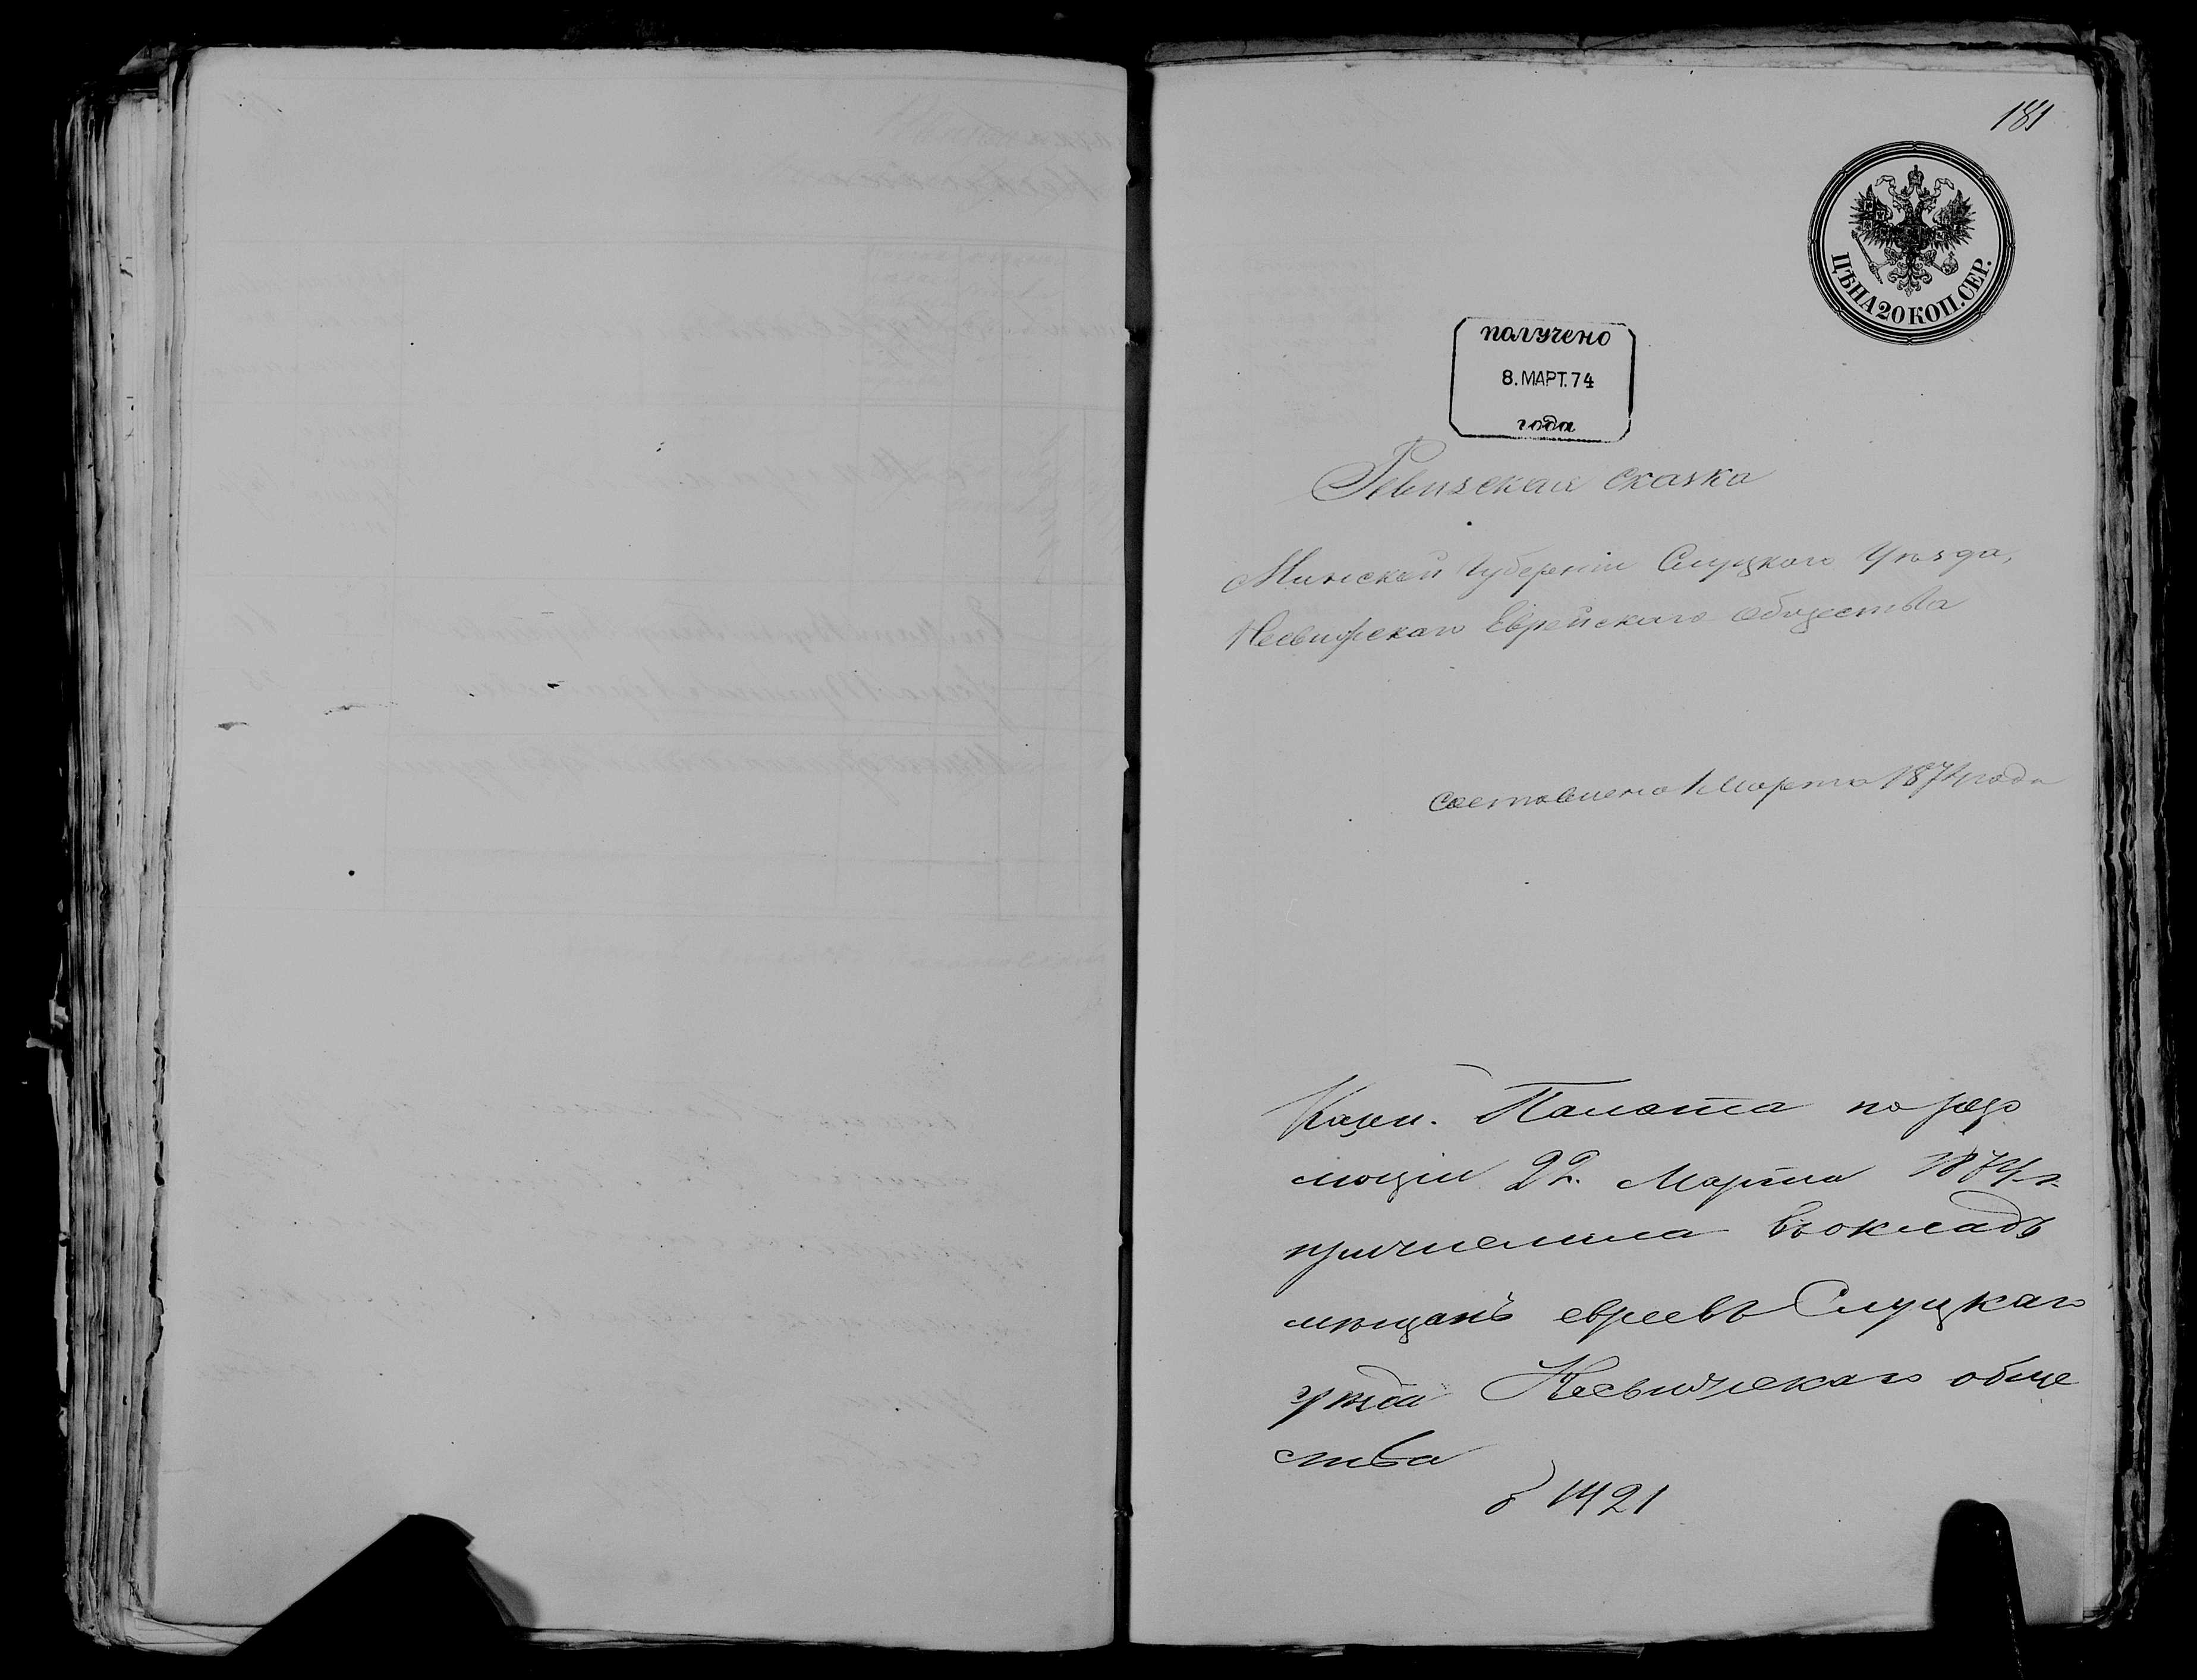 181
ЦѢНА 20 КОП. СЕР.
получено
8. МАРТ. 74
года
Ревизская сказка
Минской Губерніи Слуцкаго Уѣзда,
Несвижскаго Еврейскаго Общества
составлена 1 Марта 1874 года
Казен. Палата по резо
люціи 22. Марта 1874 г.
причислила въ окладъ
мѣщанъ евреевъ Слуцкаго
уѣзда Несвижскаго обще
ства
1421